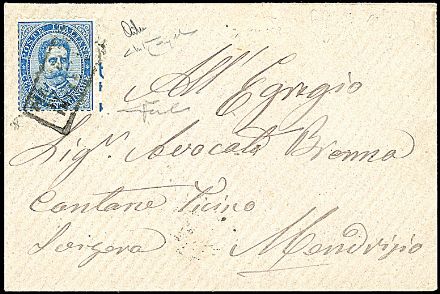 POSTE ITALIANE
All' Egregio
Sigr. Avocato Brenna
Cantone Ticino
Svizzera Mendrisio